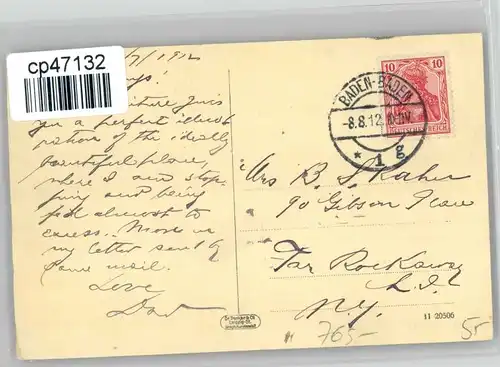 cp47132
/7/1912
picture gives
you a perfect idea
of the ideally
beautiful place,
where I am stop-
ping and being
fed almost to
excess. More in
my letter sent by
same mail.
Love
Mrs B. S. Kahn
Gibson
Far Rockaway
L.I.
N.Y.
10 10
DEUTSCHES REICH
BADEN-BADEN
-8.8.12.
* 1 g
11 20506
765-